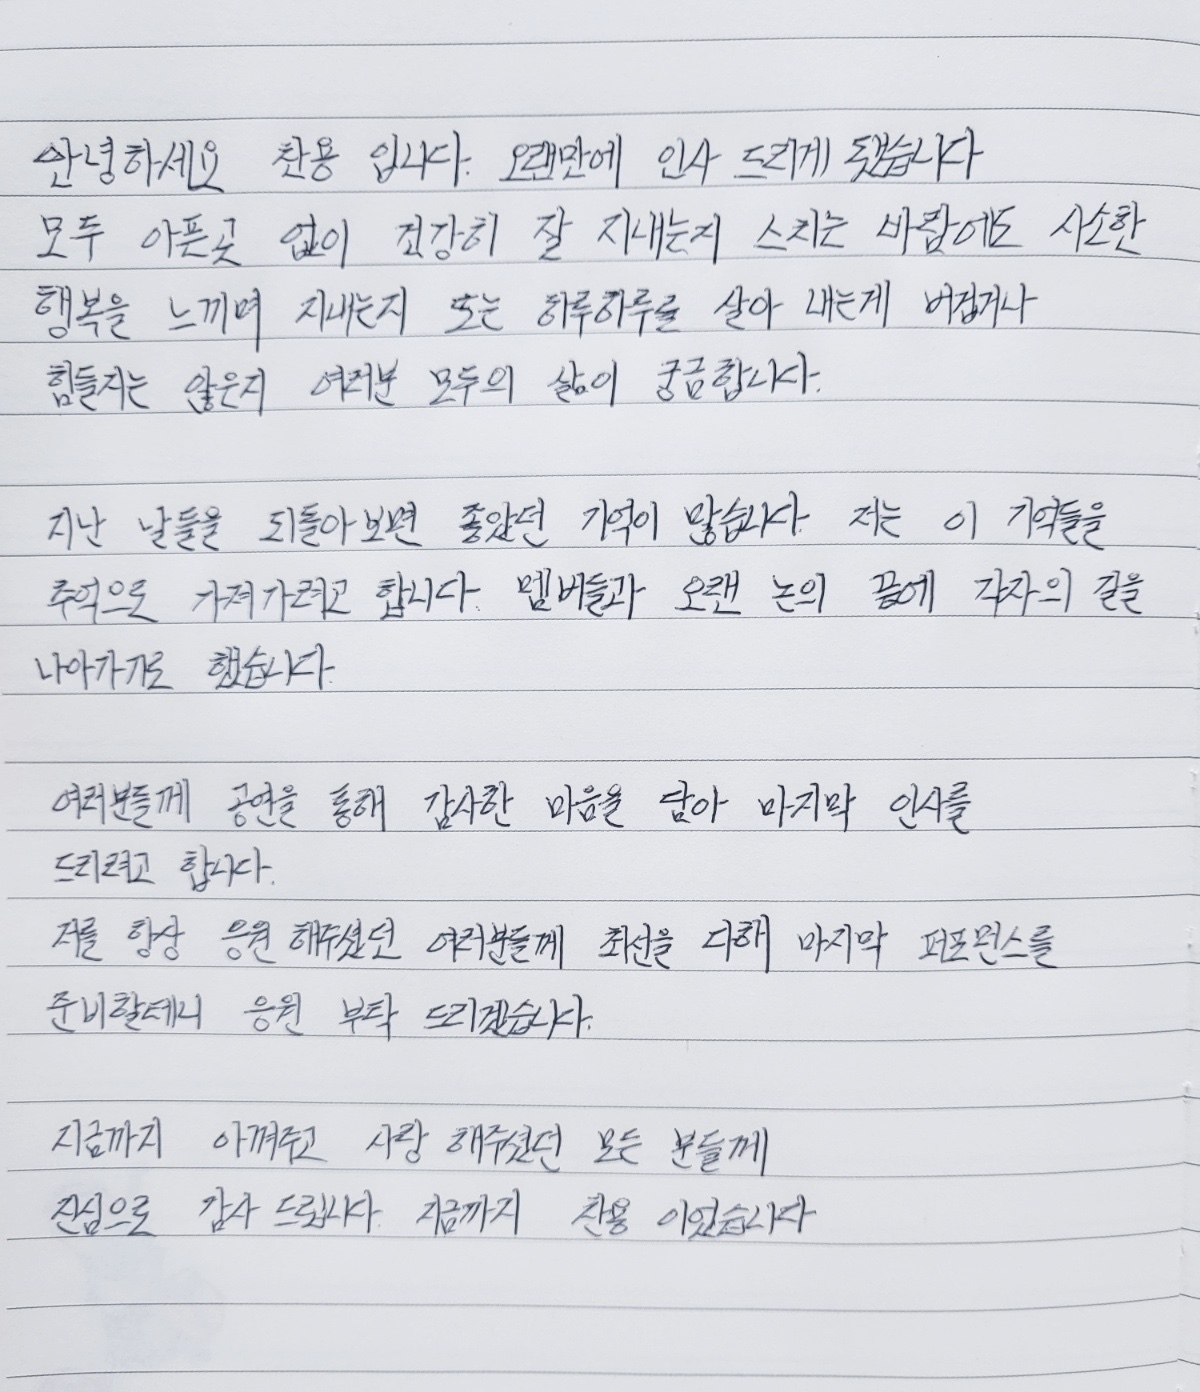 안녕하세요 찬용 입니다. 오랜만에 인사 드리게 됐습니다
모두 아픈곳 없이 건강히 잘 지내는지 스치는 바람에도 사소한
행복을 느끼며 지내는지 또는 하루하루를 살아 내는게 버겁거나
힘들지는 않은지 여러분 모두의 삶이 궁금합니다.
지난 날들을 되돌아보면 좋았던 기억이 많습니다. 저는 이 기억들을
추억으로 가져가려고 합니다. 멤버들과 오랜 논의 끝에 각자의 길을
나아가기로 했습니다.
여러분들께 공연을 통해 감사한 마음을 담아 마지막 인사를
드리려고 합니다.
저를 항상 응원 해주셨던 여러분들께 최선을 다해 마지막 퍼포먼스를
준비할테니 응원 부탁 드리겠습니다.
지금까지 아껴주고 사랑 해주셨던 모든 분들께
진심으로 감사 드립니다. 지금까지 찬용 이었습니다